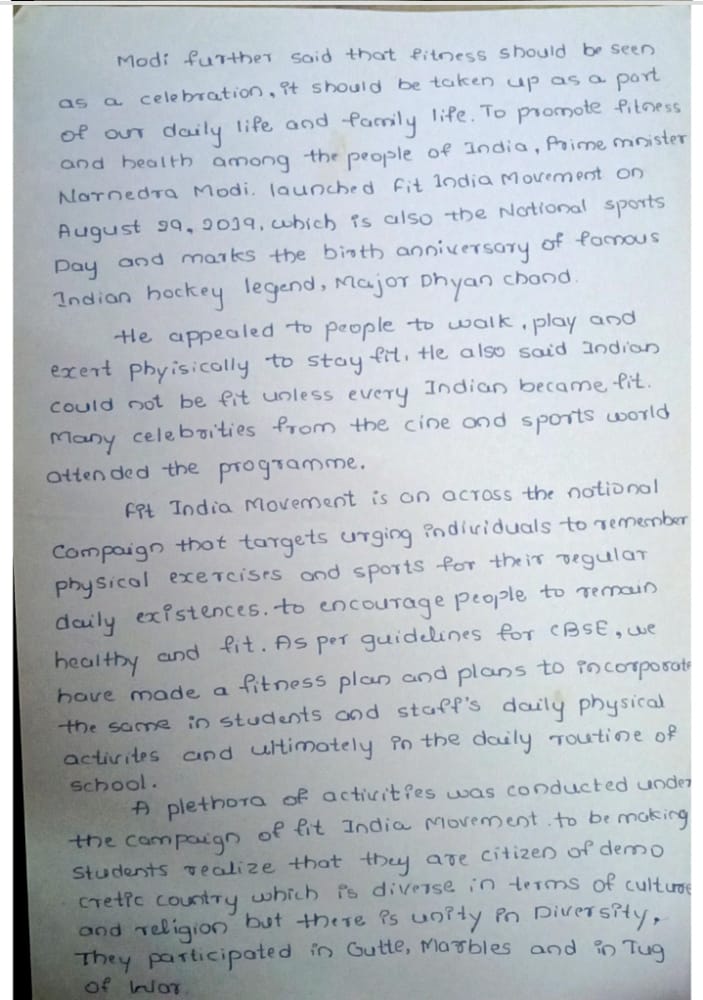 Modi further said that fitness should be seen
as a celebration, it should be taken up as a part
of our daily life and family life. To promote fitness
and health among the people of India, Prime mnister
Narnedra Modi. launched Fit India Movement on
August 29, 2019, which is also the National sports
Day and marks the birth anniversary of famous
Indian hockey legend, Major Dhyan chand.
He appealed to people to walk, play and
exert phyisically to stay fit. He also said Indian
could not be fit unless every Indian became fit.
Many celebrities from the cine and sports world
attended the programme.
Fit India Movement is an across the national
Campaign that targets urging individuals to remember
physical exercises and sports for their regular
daily existences. to encourage people to remain
healthy and fit. As per guidelines for CBSE, we
have made a fitness plan and plans to incorporate
the same in students and staff's daily physical
activites and ultimately in the daily routine of
school.
A plethora of activities was conducted under
the campaign of fit India Movement. to be making
Students realize that they are citizen of demo
cretic country which is diverse in terms of culture
and religion but there is unity in Diversity.
They participated in Gutte, Marbles and in Tug
of War.